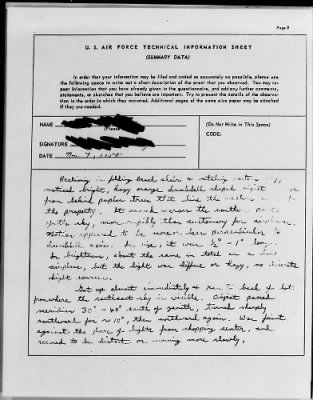 Page 9
U. S. AIR FORCE TECHNICAL INFORMATION SHEET
(SUMMARY DATA)
In order that your information may be filed and coded as accurately as possible, please use
the following space to write out a short description of the event that you observed. You may re-
peat information that you have already given in the questionnaire, and add any further comments,
statements, or sketches that you believe are important. Try to present the details of the observa-
tion in the order in which they occurred. Additional pages of the same size paper may be attached
if they are needed.
NAME
(Do Not Write in This Space)
(Please
CODE:
SIGNATURE
DATE Nov. 7,
Reclining in folding beach chair &
noticed bright, hazy orange dumbbell shaped
from behind poplar trees that line the
the property. It moved across the south
sky, more rapidly than customary for airplane.
Motion appeared to be more or less perpendicular to
dumbbell axis. In size, it was ½° - 1° long.
In brightness, about the same in total as a
airplane, but the light was diffuse or hazy, no discrete
light sources.
Got up almost immediately & ran to back of lot
from where the southeast sky is visible. Object passed
meridian 30° - 40° south of zenith, turned sharply
southward for ~ 10°, then northward again. Was faint
against the glare of lights from shopping center, and
seemed to be distant or moving more slowly.